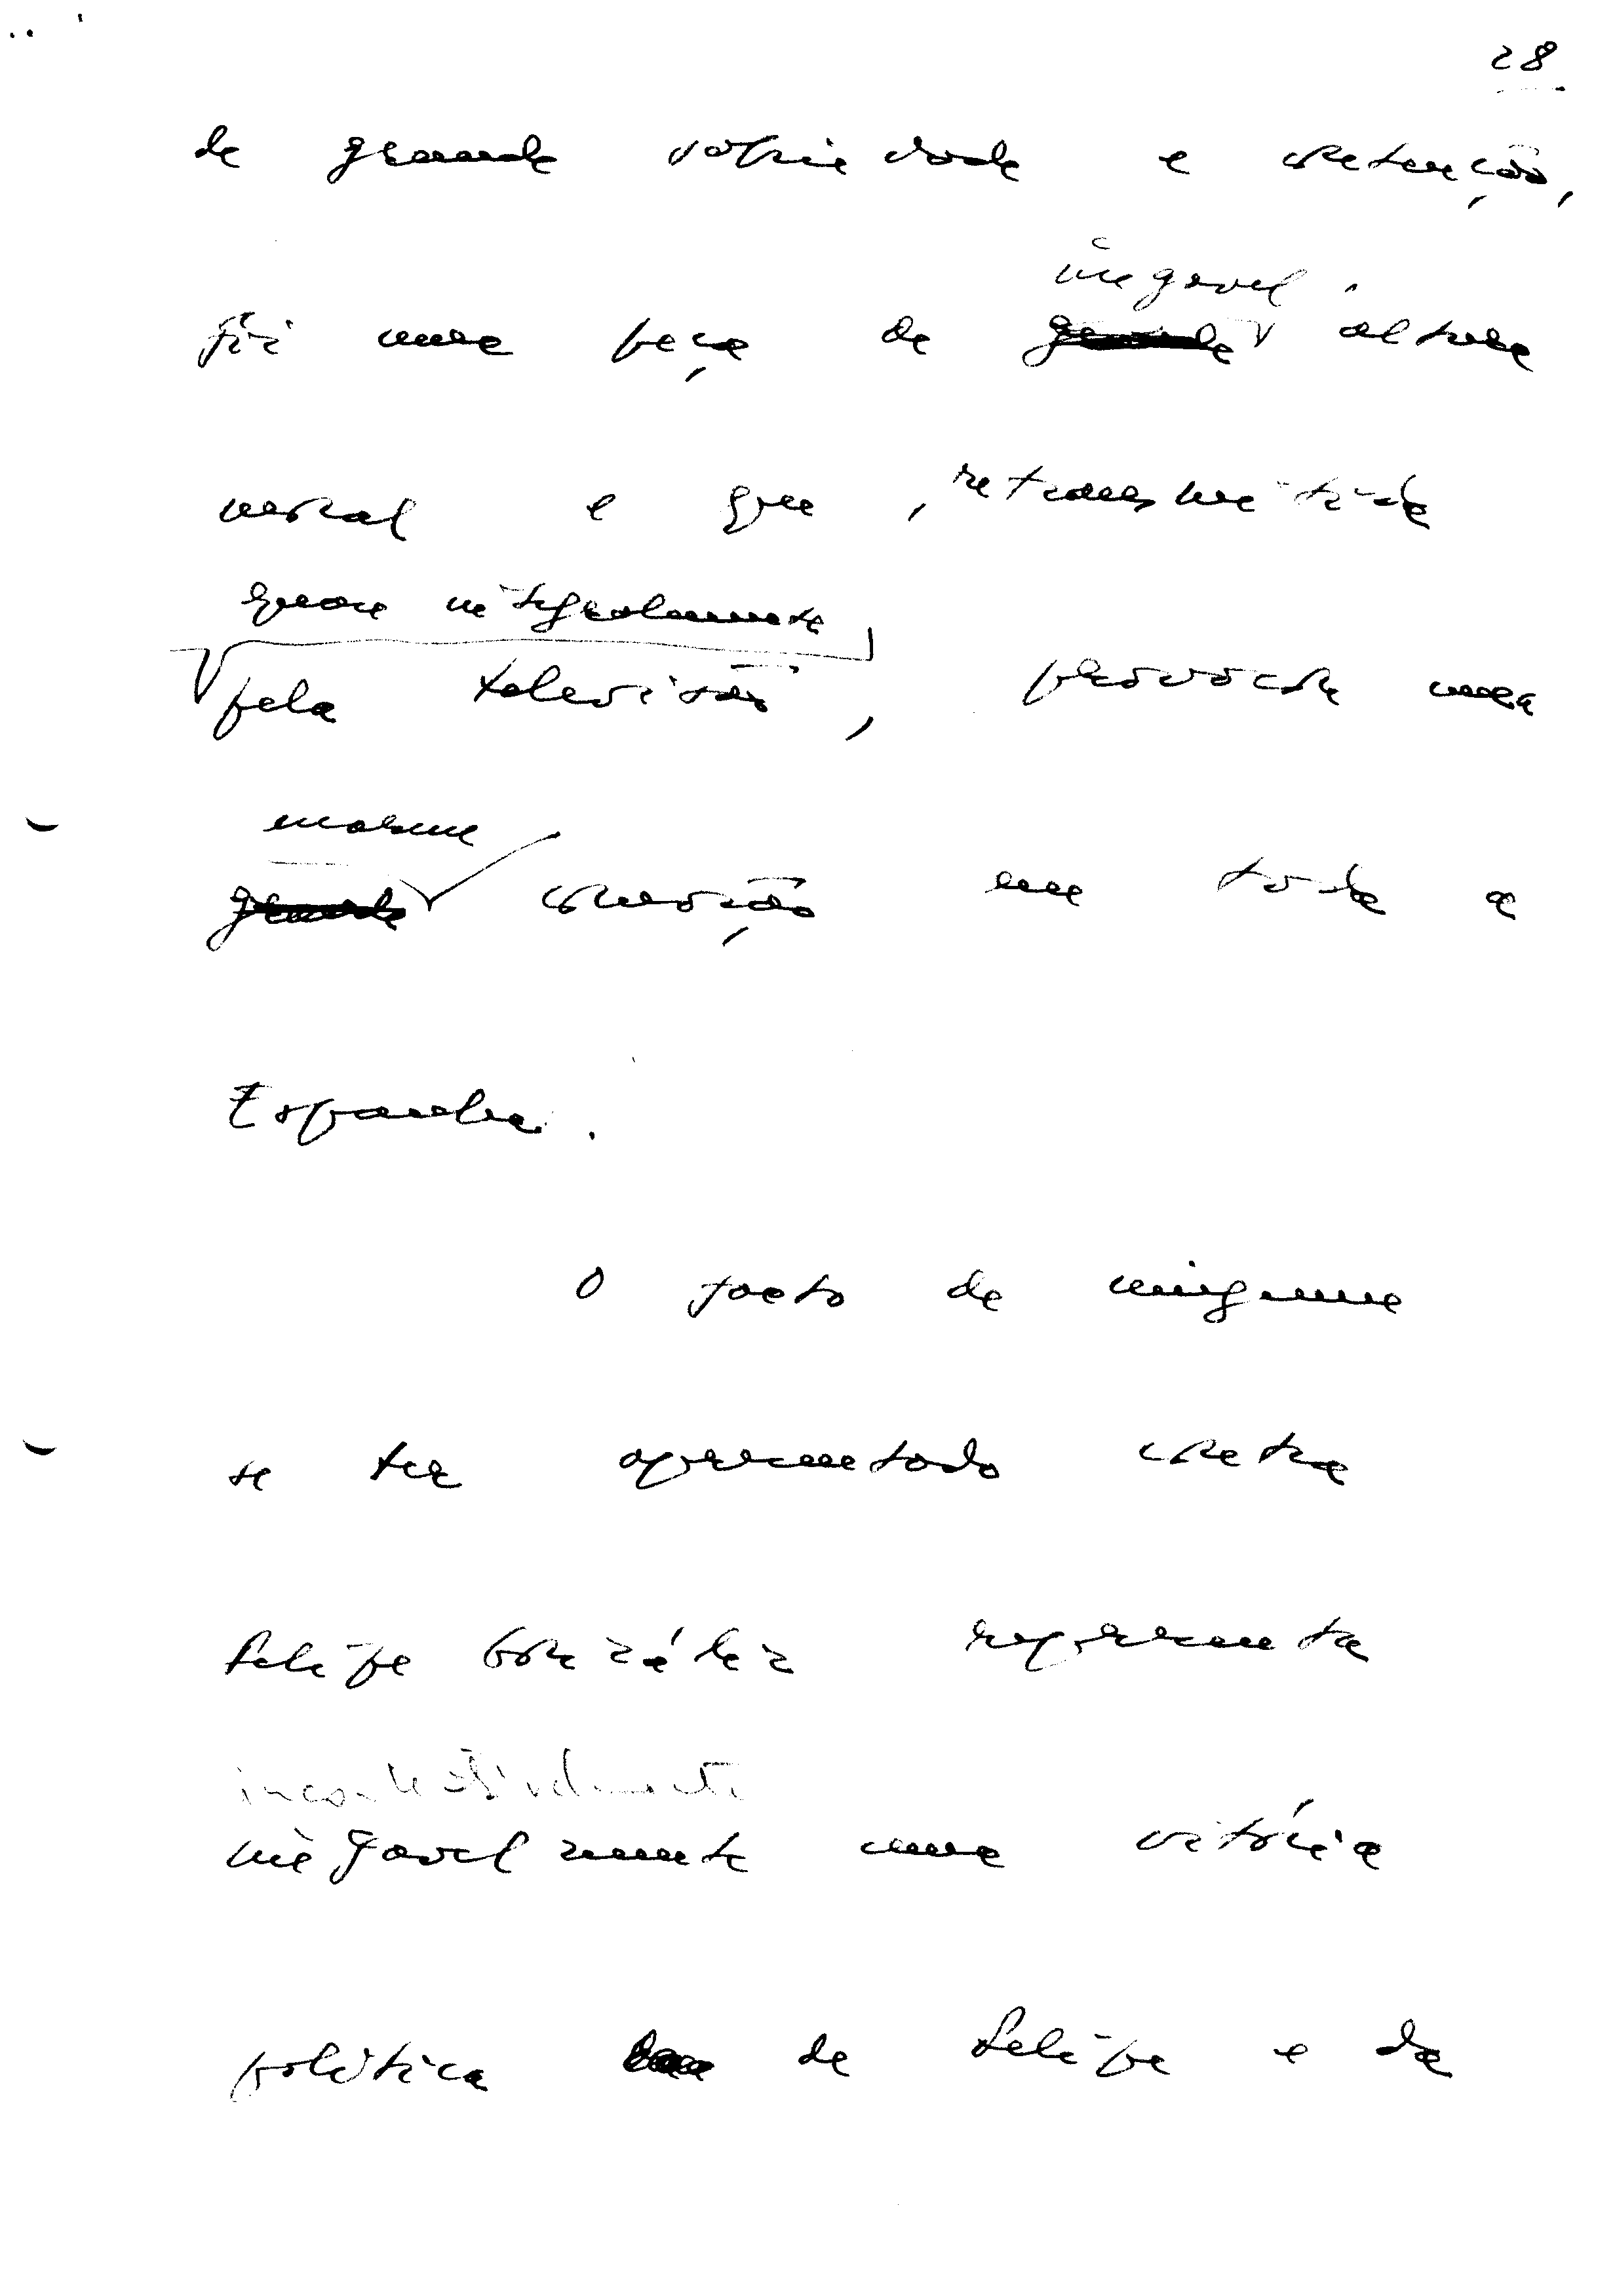 28
de grande sobriedade e contenção,
inegável
foi uma peça de grande altura
moral e que, retransmitida
quase integralmente
pela televisão, provocou uma
enorme
grande comoção em toda a
Espanha.
O facto de ninguem
se ter apresentado contra
Felipe González representa
incontestàvelmente
inegavelmente uma vitória
política de Felipe e da